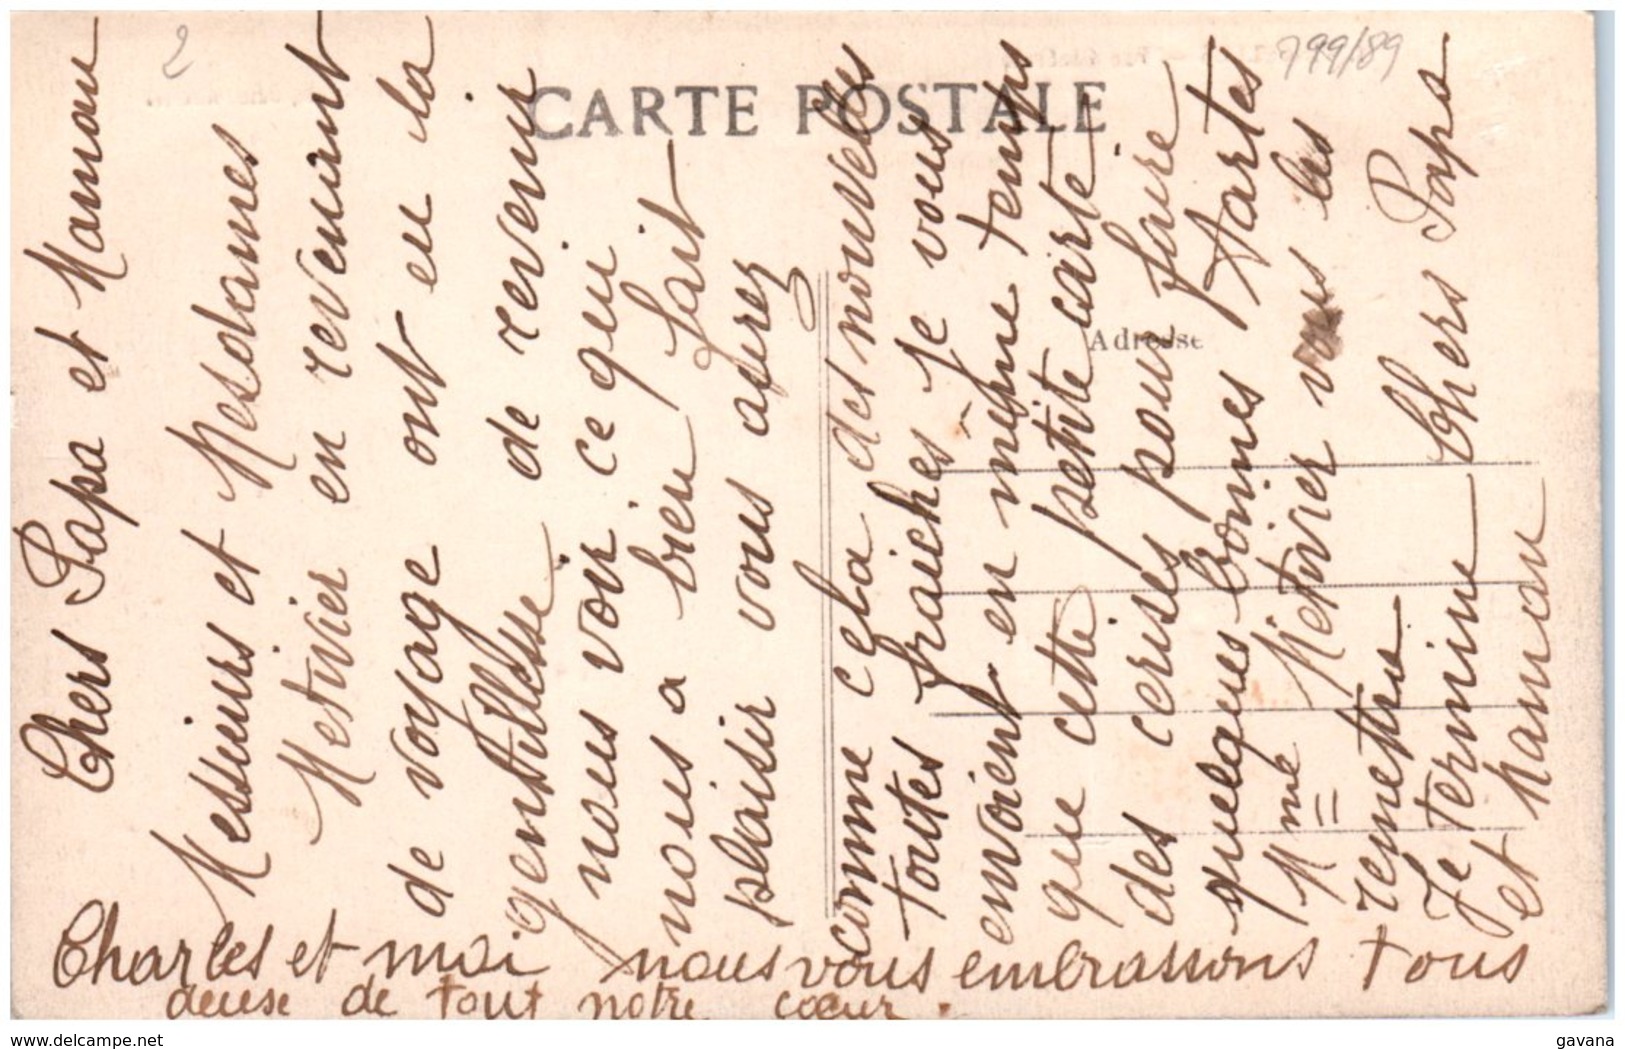 2
799/89
CARTE POSTALE
Adresse
Chers Papa et Maman
Messieurs et Mesdames
Mestivier en revenant
de voyage ont eu la
gentillesse de revenir
nous voir ce qui
nous a bien fait
plaisir vous aurez
comme cela des nouvelles
toutes fraiches - Je vous
envoient en même temps
que cette petite carte
des cerises pour faire
quelques bonnes tartes
Mme Metivier vous les
remettra
Je termine Chers Papa
et Maman
Charles et moi nous vous embrassons tous
deuse de tout notre cœur.
gavana
delcampe.net